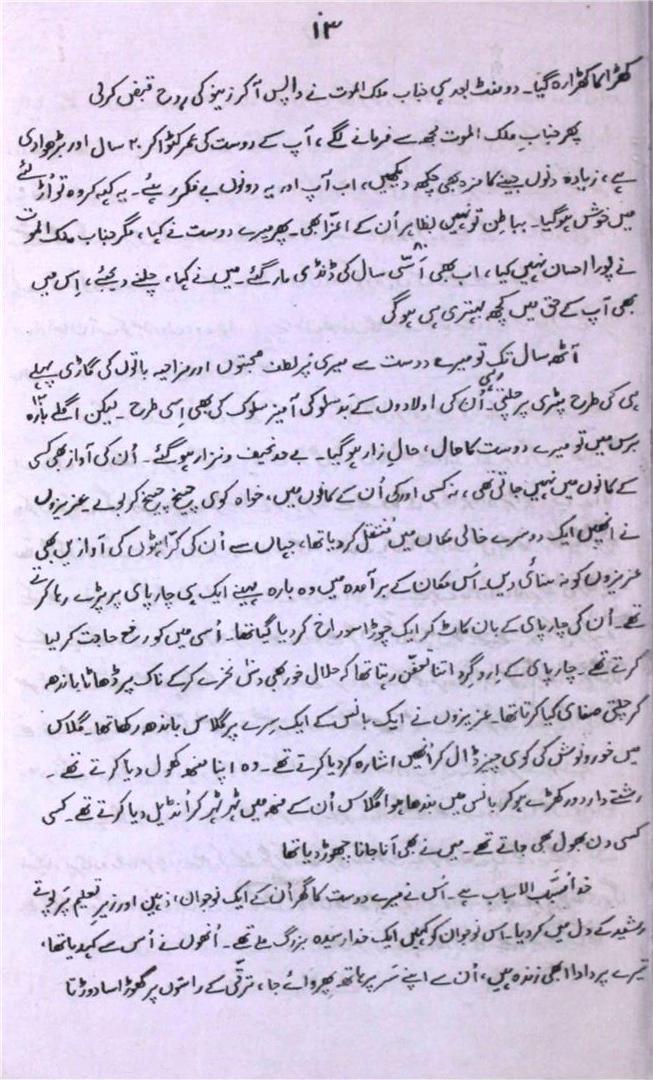 ۱۳
کھڑا کا کھڑا رہ گیا۔ دو منٹ بعد ہی جناب ملک الموت نے واپس آ کر زینو کی روح قبض کر لی
پھر جناب ملک الموت مجھ سے فرمانے لگے، آپ کے دوست کی عمر کٹوا کر ۲۰ سال اور بڑھوا دی
ہے، زیادہ دنوں جینے کا مزہ بھی چکھ دیکھیں، اب آپ اور یہ دونوں بے فکر رہئے۔ یہ کہہ کر وہ تو اڑ گئے
میں خوش ہو گیا۔ بباطن تو نہیں بظاہر اُن کے اعزّا بھی۔ پھر میرے دوست نے کہا، مگر جناب ملک الموت
نے پورا احسان نہیں کیا، اب بھی اَسّی ۸۰ سال کی ڈنڈی مار گئے۔ میں نے کہا، چلنے دیجئے، اِس میں
بھی آپ کے حق میں کچھ بہتری ہی ہو گی
آٹھ سال تک تو میرے دوست سے میری پُر لطف صحبتوں اور مزاحیہ باتوں کی گاڑی پہلے
ہی کی طرح پٹری پر چلتی رہی۔ اُن کی اولادوں کے بدسلوکی آمیز سلوک کی بھی اِسی طرح۔ لیکن اگلے بارہ ۱۲
برس میں تو میرے دوست کا حال، حالِ زار ہو گیا۔ بے حد نحیف و نزار ہو گئے۔ اُن کی آواز بھی کسی
کے کانوں میں نہیں جاتی تھی، نہ کسی اور کی اُن کے کانوں میں، خواہ کوی چیخ چیخ کر بولے عزیزوں
نے انھیں ایک دوسرے خالی مکان میں مُنتقل کر دیا تھا، جہاں سے اُن کی کراہٹوں کی آوازیں بھی
عزیزوں کو نہ سنائی دیں۔ اُس مکان کے برآمدہ میں وہ بارہ مہینے ایک ہی چارپای پر پڑے رہا کرتے
تھے۔ اُن کی چارپای کے بان کاٹ کر ایک چوڑا سوراخ کر دیا گیا تھا۔ اُسی میں کو رفع حاجت کر لیا
کرتے تھے۔ چارپای کے اِرد گِرد اتنا تعفّن رہتا تھا کہ حلال خور بھی دس نخرے کر کے ناک پر ڈھاٹا باندھ
کر جلتی صفای کیا کرتا تھا۔ عزیزوں نے ایک بانس کے ایک سِرے پر گلاس باندھ رکھا تھا۔ گلاس
میں خورونوش کی کوی چیز ڈال کر انھیں اشارہ کر دیا کرتے تھے۔ وہ اپنا منھ کھول دیا کرتے تھے۔
رشتے دار دور کھڑے ہو کر بانس میں بندھا ہوا گلاس اُن کے منھ میں ٹہر ٹہر کر اُنڈیل دیا کرتے تھے۔ کسی
کسی دن بھول بھی جاتے تھے۔ میں نے بھی آنا جانا چھوڑ دیا تھا
خدا مسبّب الاسباب ہے۔ اُس نے میرے دوست کا گھر اُن کے ایک نوجوان، ذہین اور زیرِ تعلیم پَر پوتے
رشید کے دل میں کر دیا۔ اس نوجوان کو کہیں ایک خدا رسیدہ بزرگ ملے تھے۔ اُنھوں نے اُس سے کہہ دیا تھا،
تیرے پردادا ابھی زندہ ہیں، اُن سے اپنے سَر پر ہاتھ پھروائے جا، ترقّی کے راستوں پر گھوڑا سا دوڑتا